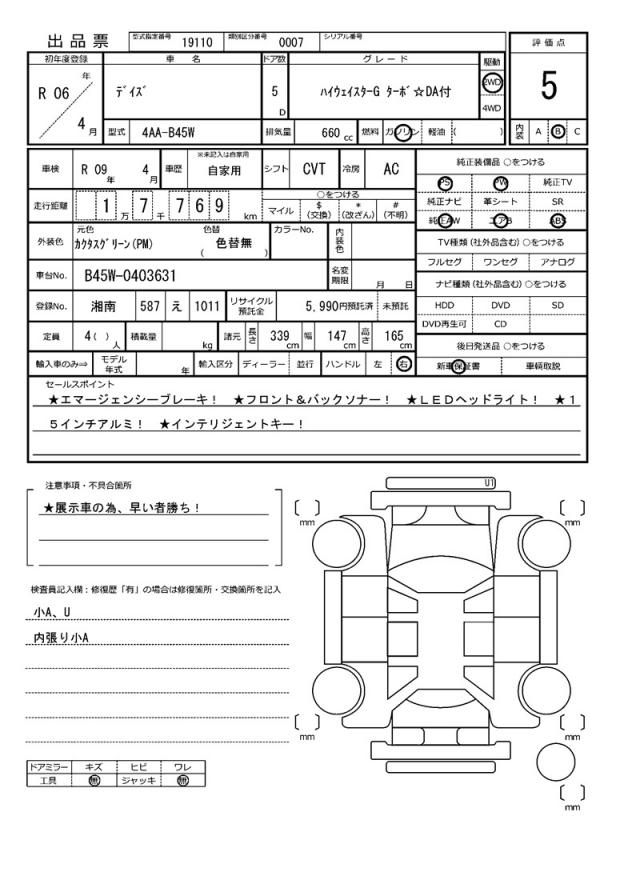 出品票 型式指定番号 19110 類別区分番号 0007 シリアル番号
評価点
5
内装 A B C
初年度登録 車名 ドア数 グレード 駆動
R 06 年 4 月
デイズ 5 D ハイウェイスターG ターボ☆DA付 2WD 4WD
型式 4AA-B45W 排気量 660 cc 燃料 ガソリン 軽油 ( )
車検 R 09 年 4 月 車歴 ※未記入は自家用 自家用 シフト CVT 冷房 AC
走行距離 1 万 7 千 7 6 9 km ○をつける マイル $ (交換) * (改ざん) # (不明)
外装色 元色 カクタスグリーン(PM) 色替 色替無 ( ) カラーNo. 内装色
車台No. B45W-0403631 名変期限 月 日
登録No. 湘南 587 え 1011 リサイクル預託金 5,990円預託済 未預託
定員 4( ) 人 積載量 kg 諸元 長さ 339 cm 幅 147 cm 高さ 165 cm
輸入車のみ⇒ モデル年式 年 輸入区分 ディーラー 並行 ハンドル 左 右
純正装備品 ○をつける
PS PW 純正TV
純正ナビ 革シート SR
純正AW エアB ABS
TV種類 (社外品含む) ○をつける
フルセグ ワンセグ アナログ
ナビ種類 (社外品含む) ○をつける
HDD DVD SD
DVD再生可 CD
後日発送品 ○をつける
新車保証書 車輌取説
セールスポイント
★エマージェンシーブレーキ! ★フロント&バックソナー! ★LEDヘッドライト! ★1
5インチアルミ! ★インテリジェントキー!
注意事項・不具合箇所
★展示車の為、早い者勝ち!
検査員記入欄:修復歴「有」の場合は修復箇所・交換箇所を記入
小A、U
内張り小A
ドアミラー キズ ヒビ ワレ
工具 無 ジャッキ 無
U1
[ ] mm
[ ] mm
[ ] mm
[ ] mm
[ ] mm